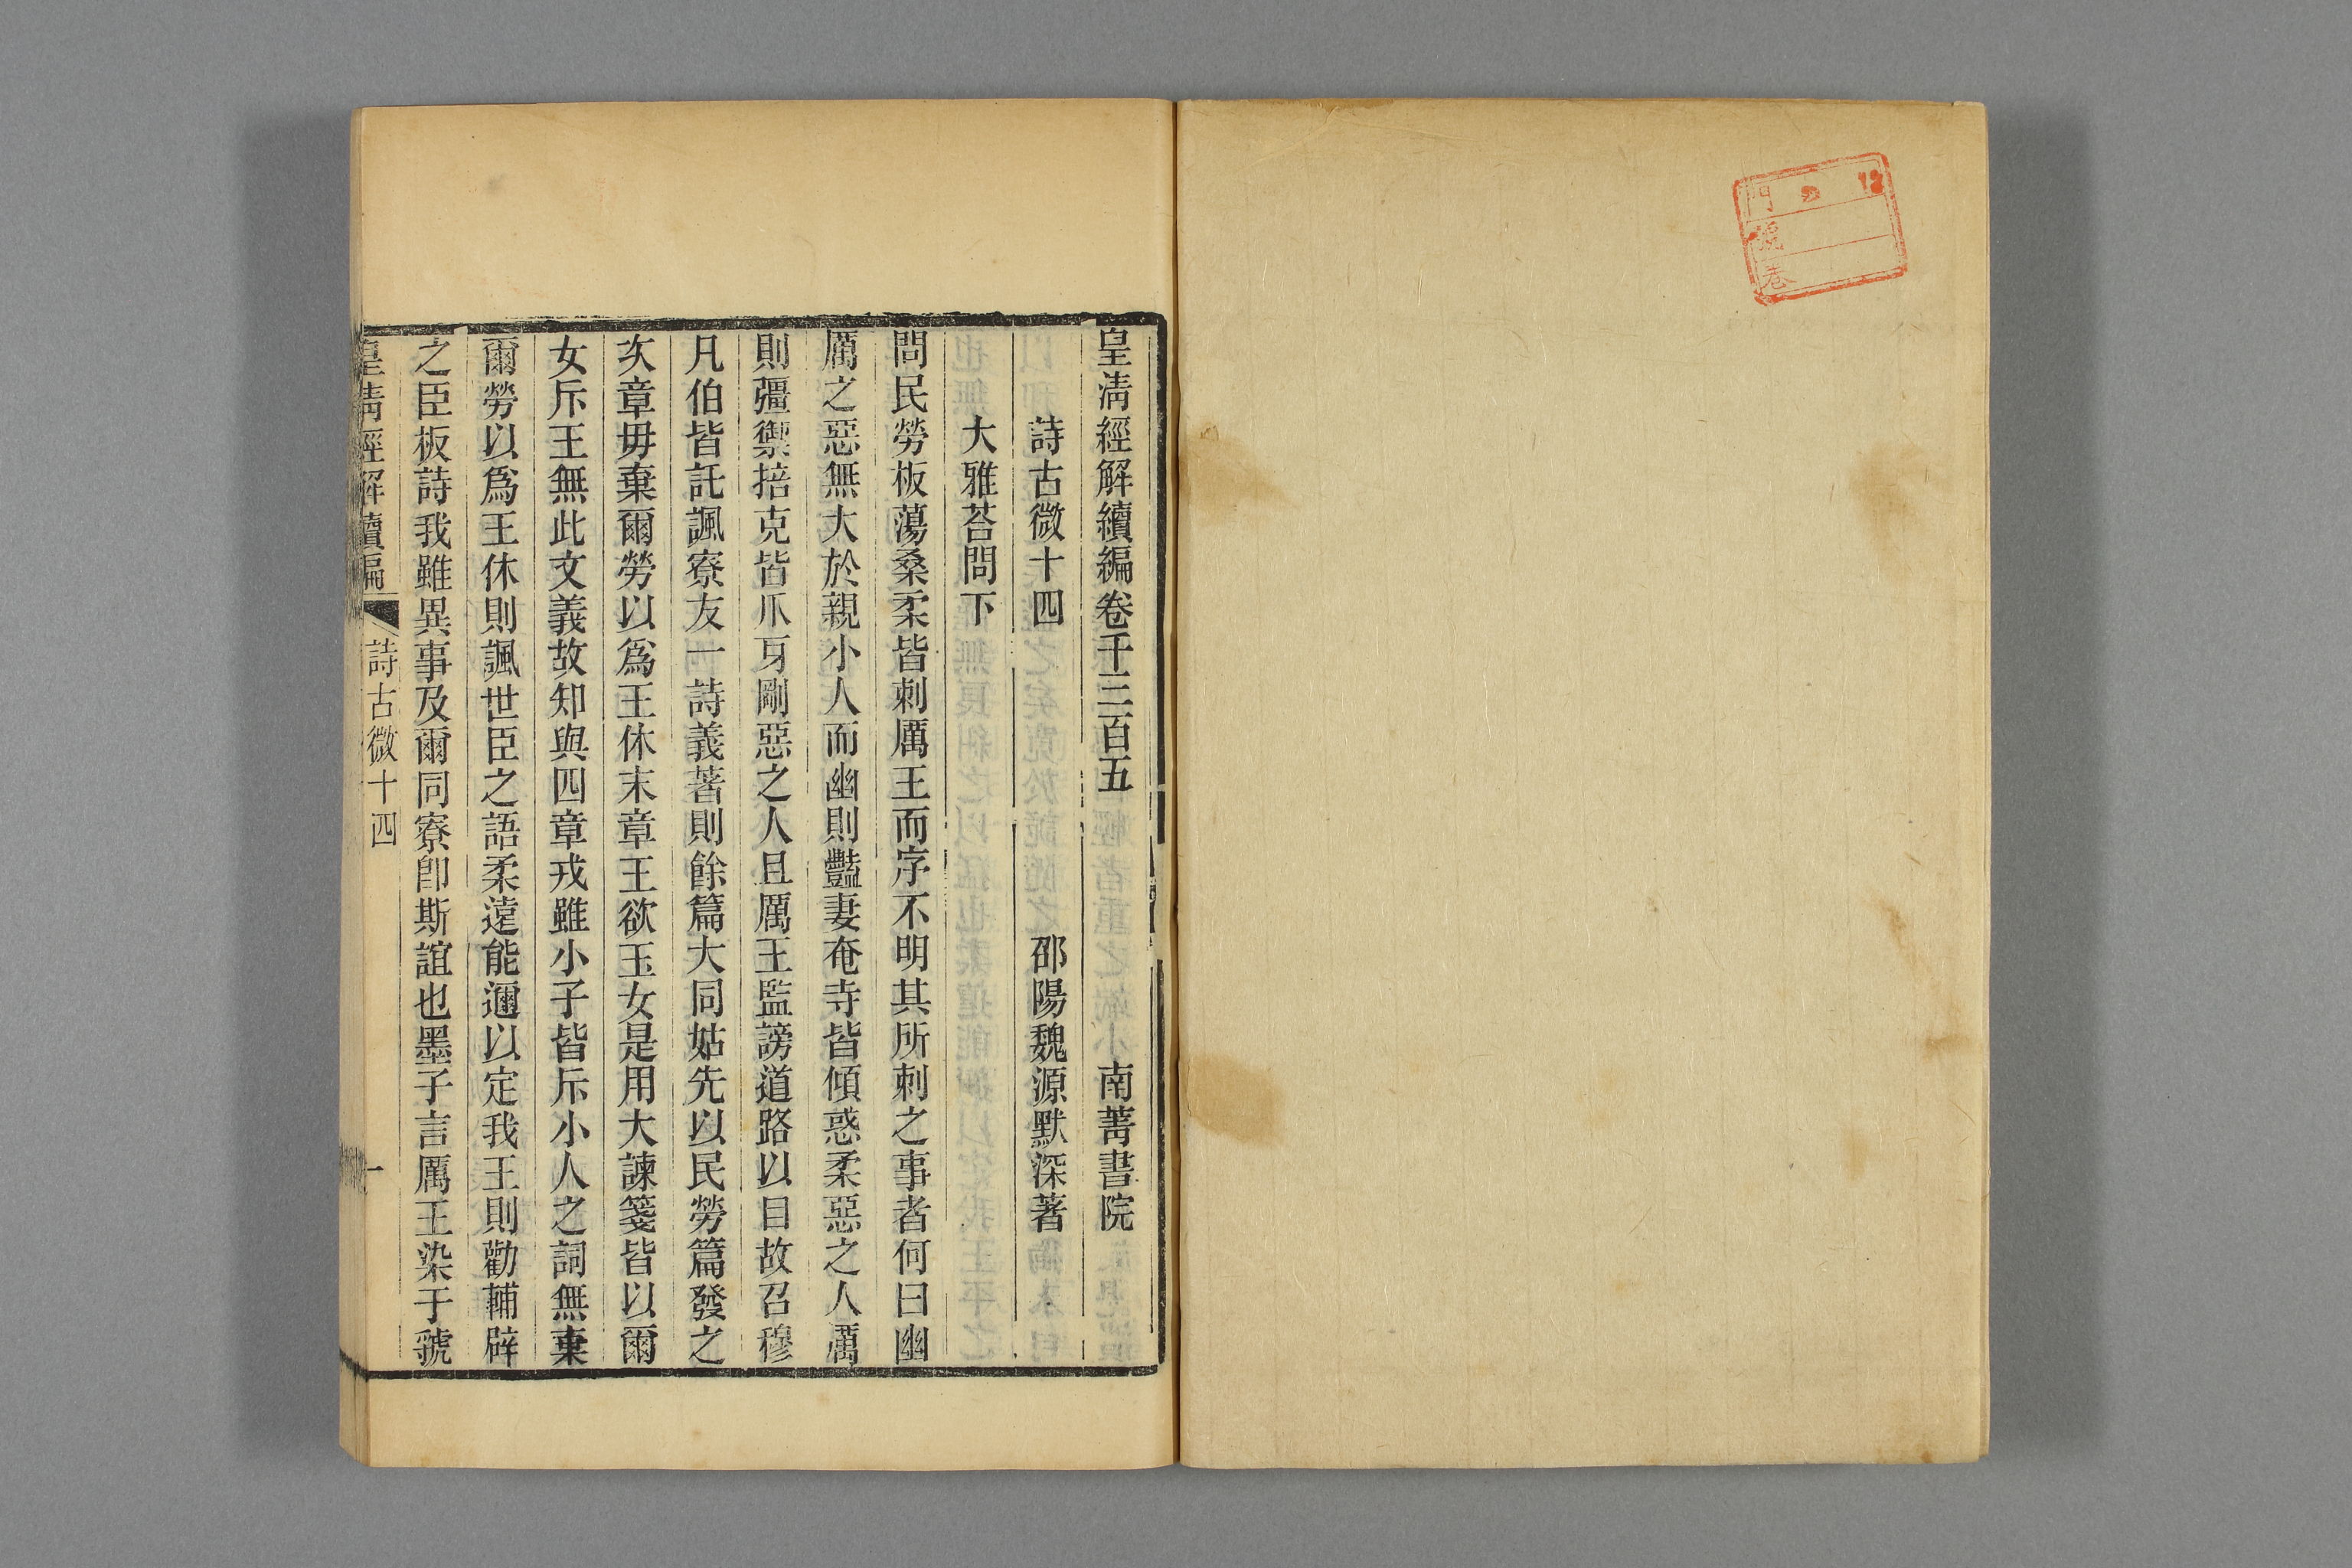 門
號
卷
皇清經解續編卷千三百五　南菁書院
詩古微十四　邵陽魏源默深著
大雅荅問下
問民勞板蕩桑柔皆刺厲王而序不明其所刺之事者何曰幽
厲之惡無大於親小人而幽則豔妻奄寺皆傾惑柔惡之人厲
則彊禦掊克皆爪牙剛惡之人且厲王監謗道路以目故召穆
凡伯皆託諷寮友一詩義著則餘篇大同姑先以民勞篇發之
次章毋棄爾勞以爲王休末章王欲玉女是用大諫箋皆以爾
女斥王無此文義故知與四章戎雖小子皆斥小人之詞無棄
爾勞以爲王休則諷世臣之語柔遠能邇以定我王則勸輔辟
之臣板詩我雖異事及爾同寮卽斯誼也墨子言厲王染于虢
皇清經解續編　詩古微十四　一